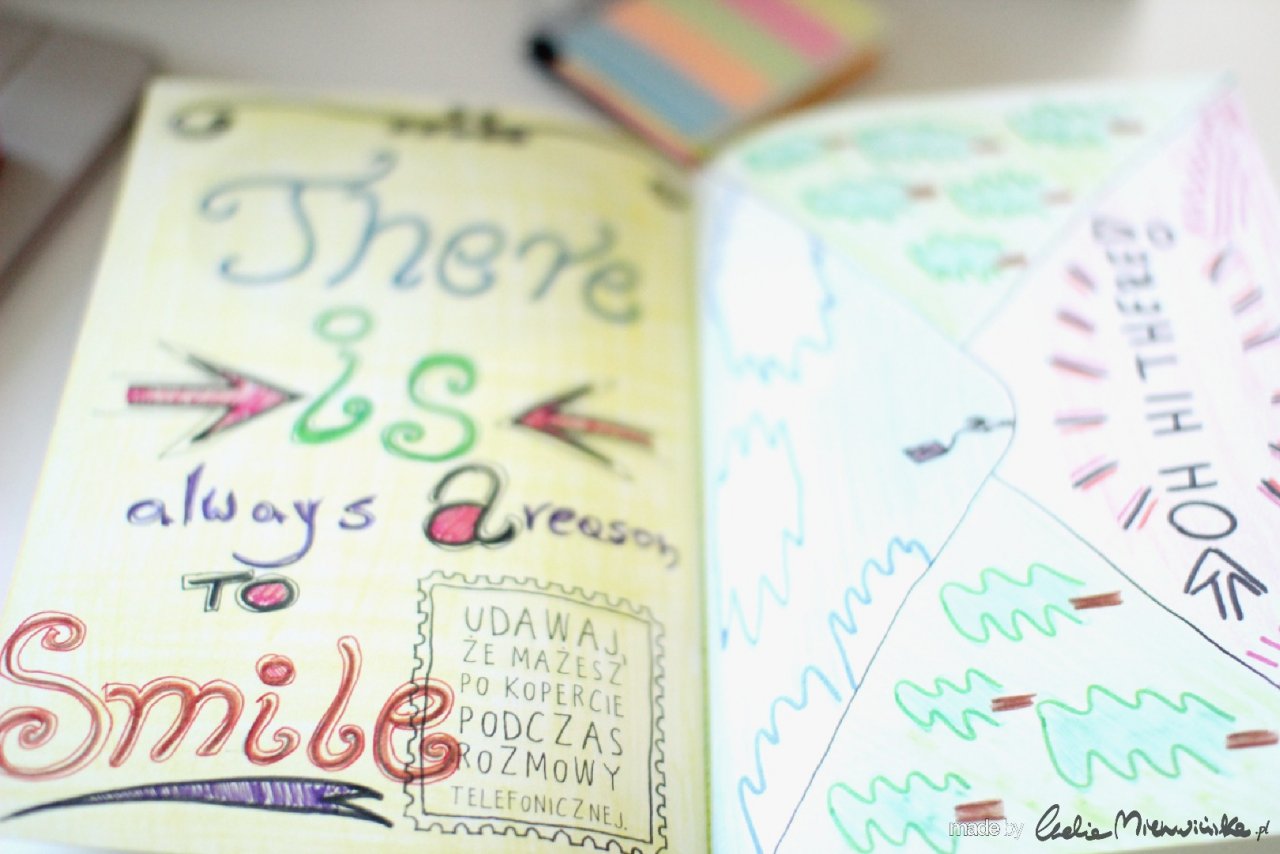 There
is
always a reason
TO
Smile
UDAWAJ,
ŻE MAŻESZ
PO KOPERCIE
PODCZAS
ROZMOWY
TELEFONICZNEJ.
OH HI THERE!
made by